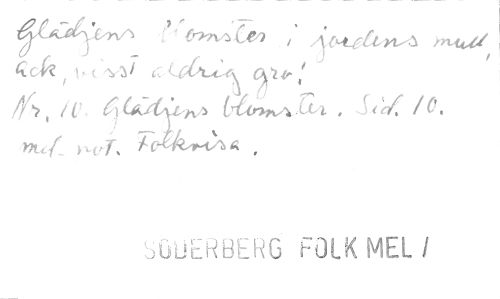 Glädjens blomster i jordens mull,
ack, visst aldrig gro!
Nr. 10. Glädjens blomster. Sid. 10.
md. not. Folkvisa.
SÖDERBERG FOLK MEL /